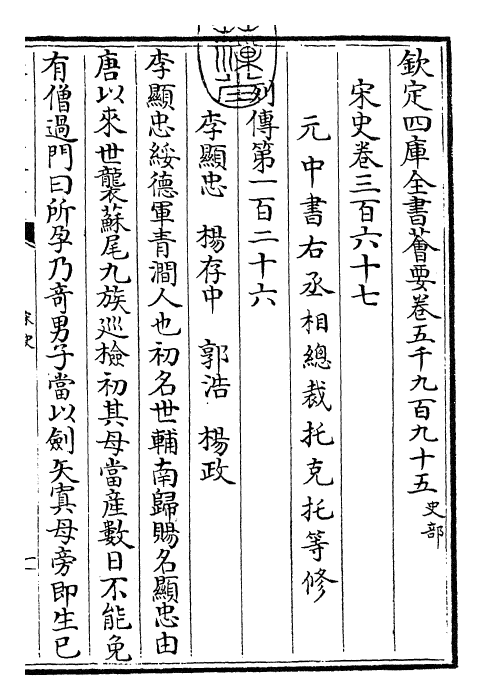 欽定四庫全書薈要卷五千九百九十五 史部
宋史卷三百六十七
元中書右丞相總裁托克托等修
列傳第一百二十六
李顯忠 楊存中 郭浩 楊政
李顯忠綏德軍青澗人也初名世輔南歸賜名顯忠由
唐以來世襲蘇尾九族巡檢初其母當産數日不能免
有僧過門曰所孕乃竒男子當以劒矢寘母旁即生已
宋史